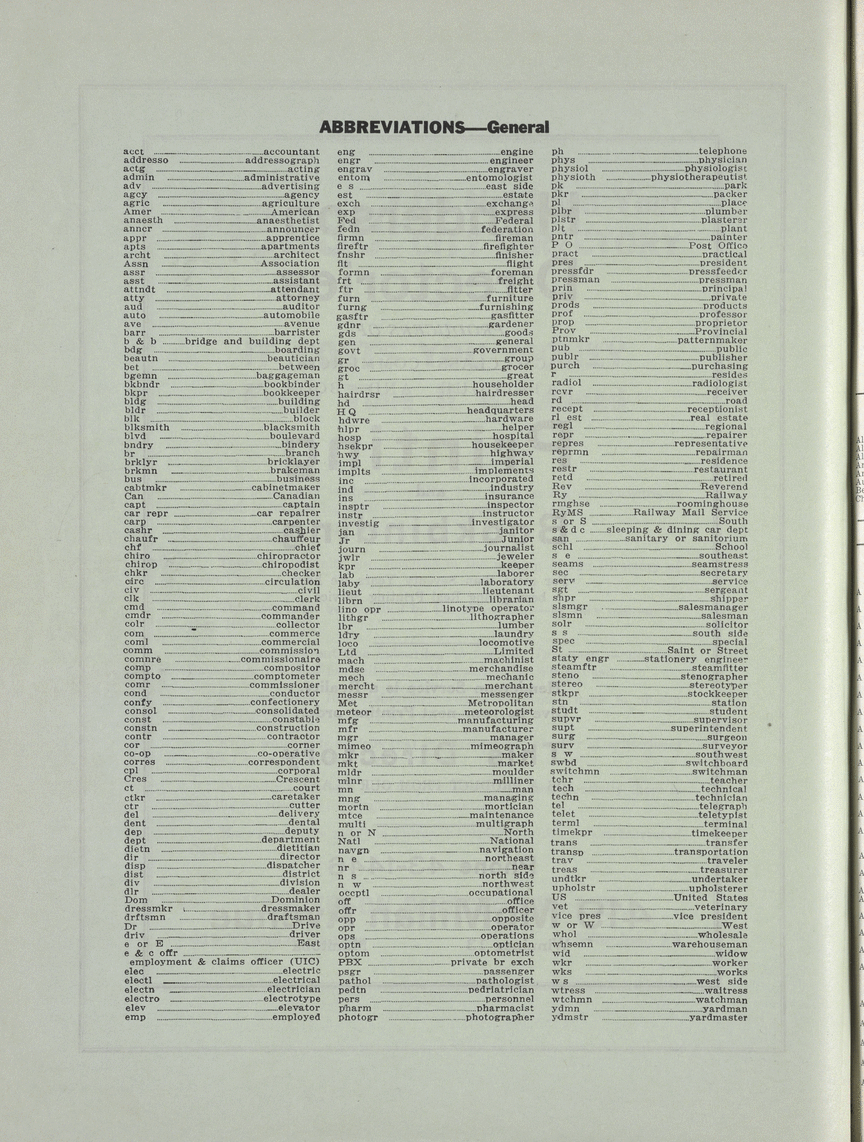 ABBREVIATIONS—General
acct accountant
addresso addressograph
actg acting
admin administrative
adv advertising
agcy agency
agric agriculture
Amer American
anaesth anaesthetist
anncr announcer
appr apprentice
apts apartments
archt architect
Assn Association
assr assessor
asst assistant
attndt attendant
atty attorney
aud auditor
auto automobile
ave avenue
barr barrister
b & b bridge and building dept
bdg boarding
beautn beautician
bet between
bgemn baggageman
bkbndr bookbinder
bkpr bookkeeper
bldg building
bldr builder
blk block
blksmith blacksmith
blvd boulevard
bndry bindery
br branch
brklyr bricklayer
brkmn brakeman
bus business
cabtmkr cabinetmaker
Can Canadian
capt captain
car repr car repairer
carp carpenter
cashr cashier
chaufr chauffeur
chf chief
chiro chiropractor
chirop chiropodist
chkr checker
circ circulation
civ civil
clk clerk
cmd command
cmdr commander
colr collector
com commerce
coml commercial
comm commission
comnre commissionaire
comp compositor
compto comptometer
comr commissioner
cond conductor
confy confectionery
consol consolidated
const constable
constn construction
contr contractor
cor corner
co-op co-operative
corres correspondent
cpl corporal
Cres Crescent
ct court
ctkr caretaker
ctr cutter
del delivery
dent dental
dep deputy
dept department
dietn dietitian
dir director
disp dispatcher
dist district
div division
dlr dealer
Dom Dominion
dressmkr dressmaker
drftsmn draftsman
Dr Drive
driv driver
e or E East
e & c offr
employment & claims officer (UIC)
elec electric
electl electrical
electn electrician
electro electrotype
elev elevator
emp employed
eng engine
engr engineer
engrav engraver
entom entomologist
e s east side
est estate
exch exchange
exp express
Fed Federal
fedn federation
firmn fireman
fireftr firefighter
fnshr finisher
flt flight
formn foreman
frt freight
ftr fitter
furn furniture
furng furnishing
gasftr gasfitter
gdnr gardener
gds goods
gen general
govt government
gr group
groc grocer
gt great
h householder
hairdrsr hairdresser
hd head
H Q headquarters
hdwre hardware
hlpr helper
hosp hospital
hsekpr housekeeper
hwy highway
impl imperial
implts implements
inc incorporated
ind industry
ins insurance
insptr inspector
instr instructor
investig investigator
jan janitor
Jr Junior
journ journalist
jwlr jeweler
kpr keeper
lab laborer
laby laboratory
lieut lieutenant
librn librarian
lino opr linotype operator
lithgr lithographer
lbr lumber
ldry laundry
loco locomotive
Ltd Limited
mach machinist
mdse merchandise
mech mechanic
mercht merchant
messr messenger
Met Metropolitan
meteor meteorologist
mfg manufacturing
mfr manufacturer
mgr manager
mimeo mimeograph
mkr maker
mkt market
mldr moulder
mlnr milliner
mn man
mng managing
mortn mortician
mtce maintenance
multi multigraph
n or N North
Natl National
navgn navigation
n e northeast
nr near
n s north side
n w northwest
occptl occupational
off office
offr officer
opp opposite
opr operator
ops operations
optn optician
optom optometrist
PBX private br exch
psgr passenger
pathol pathologist
pedtn pedriatrician
pers personnel
pharm pharmacist
photogr photographer
ph telephone
phys physician
physiol physiologist
physioth physiotherapeutist
pk park
pkr packer
pl place
plbr plumber
plstr plasterer
plt plant
pntr painter
P O Post Office
pract practical
pres president
pressfdr pressfeeder
pressman pressman
prin principal
priv private
prods products
prof professor
prop proprietor
Prov Provincial
ptnmkr patternmaker
pub public
publr publisher
purch purchasing
r resides
radiol radiologist
rcvr receiver
rd road
recept receptionist
rl est real estate
regl regional
repr repairer
repres representative
reprmn repairman
res residence
restr restaurant
retd retired
Rev Reverend
Ry Railway
rmghse roominghouse
RyMS Railway Mail Service
s or S South
s & d c sleeping & dining car dept
san sanitary or sanitorium
schl School
s e southeast
seams seamstress
sec secretary
serv service
sgt sergeant
shpr shipper
slsmgr salesmanager
slsmn salesman
solr solicitor
s s south side
spec special
St Saint or Street
staty engr stationery engineer
steamftr steamfitter
steno stenographer
stereo stereotyper
stkpr stockkeeper
stn station
studt student
supvr supervisor
supt superintendent
surg surgeon
surv surveyor
s w southwest
swbd switchboard
switchmn switchman
tchr teacher
tech technical
techn technician
tel telegraph
telet teletypist
terml terminal
timekpr timekeeper
trans transfer
transp transportation
trav traveler
treas treasurer
undtkr undertaker
upholstr upholsterer
US United States
vet veterinary
vice pres vice president
w or W West
whol wholesale
whsemn warehouseman
wid widow
wkr worker
wks works
w s west side
wtress waitress
wtchmn watchman
ydmn yardman
ydmstr yardmaster